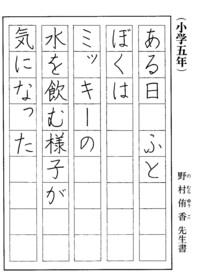 （小学五年）
ある日　ふと
ぼくは
ミッキーの
水を飲む様子が
気になった
野村侑香先生書
のむらゆうこ